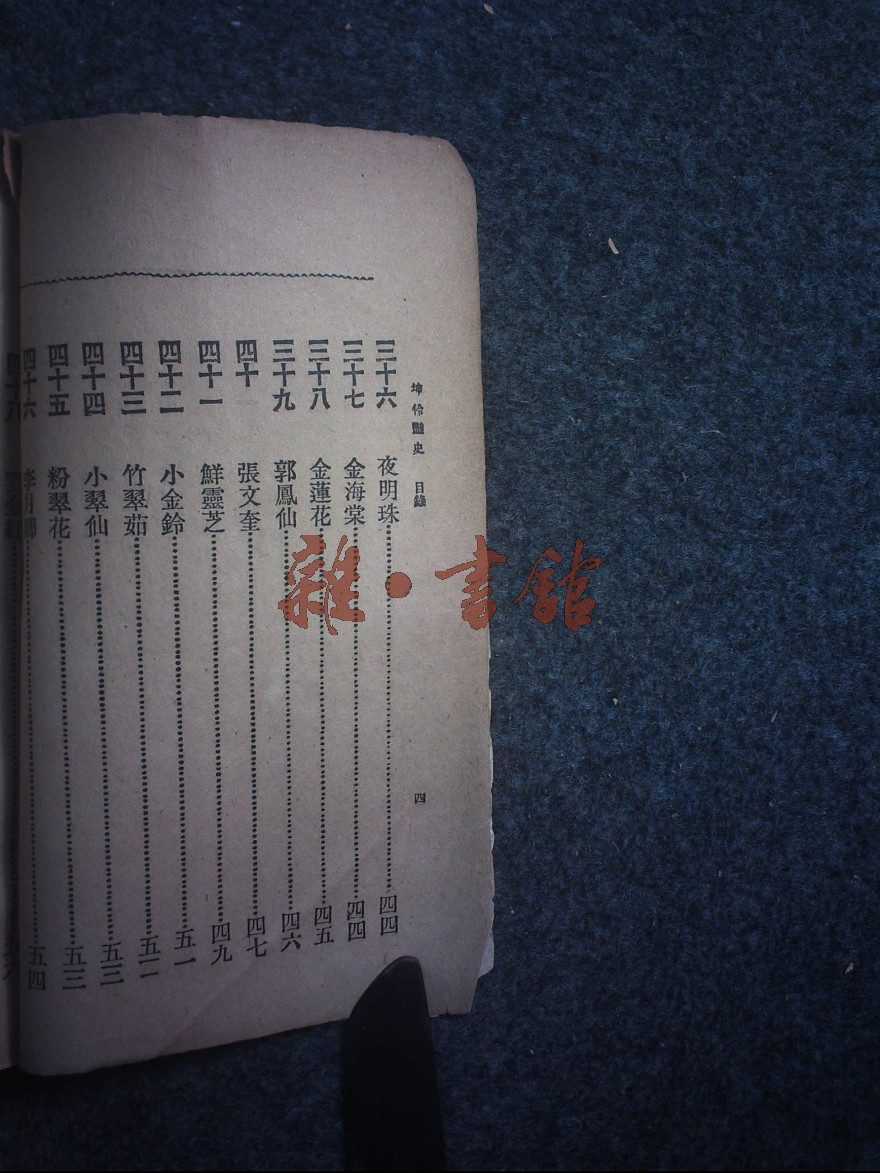 坤伶豔史 目錄 四
三十六 夜明珠 四四
三十七 金海棠 四四
三十八 金蓮花 四五
三十九 郭鳳仙 四六
四十 張文奎 四七
四十一 鮮靈芝 四九
四十二 小金鈴 五一
四十三 竹翠茹 五二
四十四 小翠仙 五三
四十五 粉翠花 五三
四十六 李月卿 五四
雜·書館